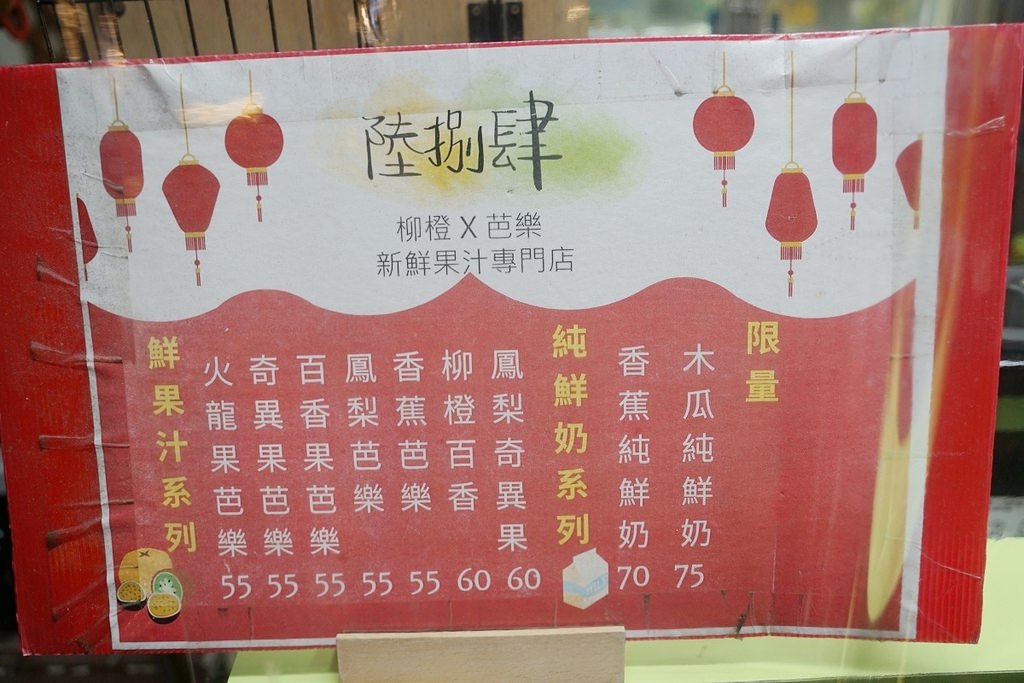 陸捌肆
柳橙 X 芭樂
新鮮果汁專門店
鮮果汁系列
火龍果芭樂 55
奇異果芭樂 55
百香果芭樂 55
鳳梨芭樂 55
香蕉芭樂 55
柳橙百香 60
鳳梨奇異果 60
純鮮奶系列
香蕉純鮮奶 70
木瓜純鮮奶 75
限量